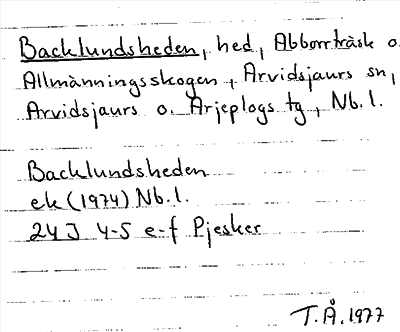 Backlundsheden, hed, Abborrträsk o.
Allmänningsskogen, Arvidsjaurs sn,
Arvidsjaurs o. Arjeplogs tg, Nb.l.
Backlundsheden
ek (1974) Nb.l.
24J 4-5 e-f Pjesker
T.Å. 1977